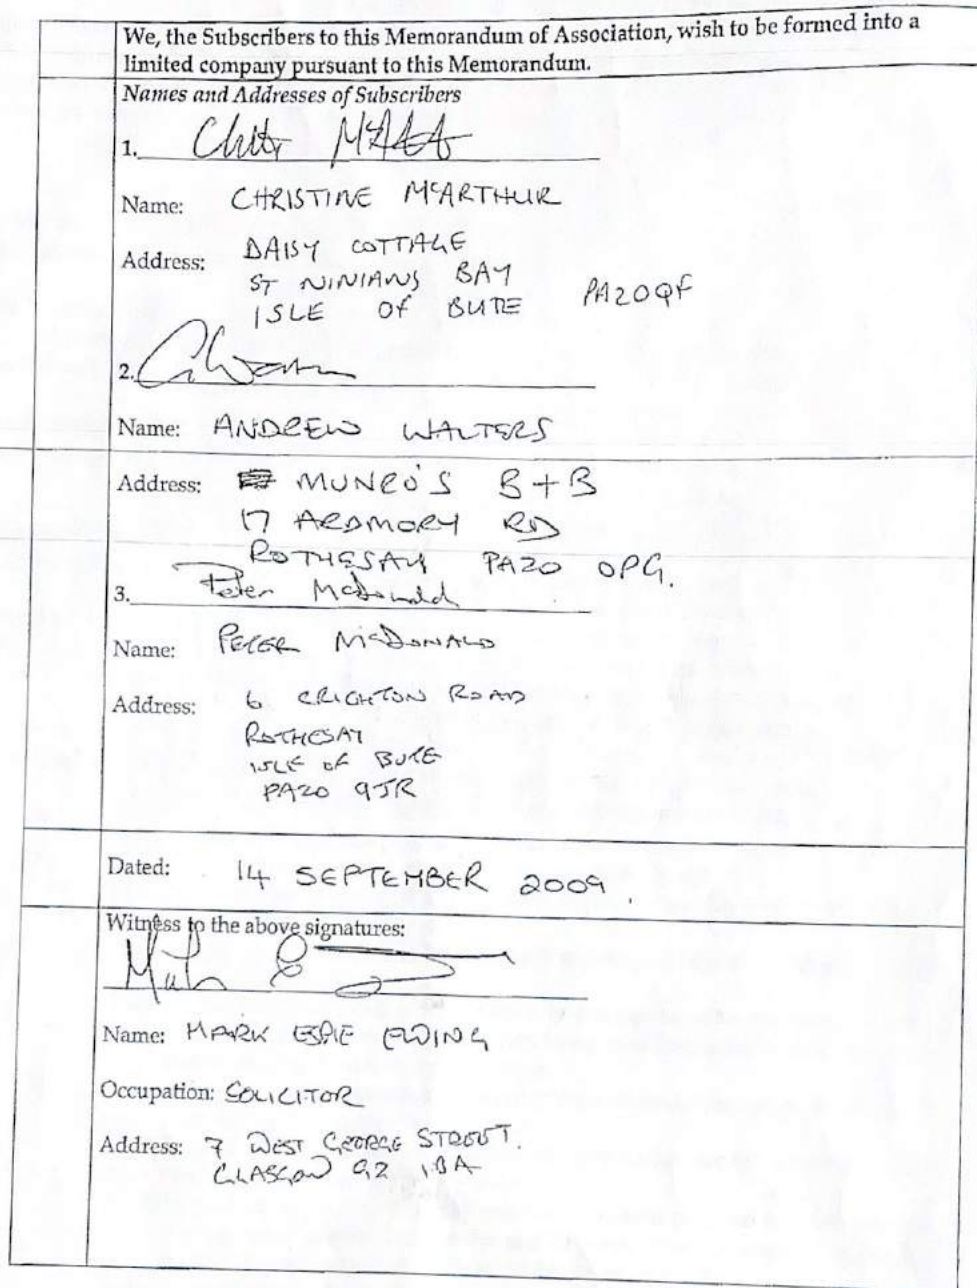 We, the Subscribers to this Memorandum of Association, wish to be formed into a
limited company pursuant to this Memorandum.
Names and Addresses of Subscribers
1.
Name: CHRISTINE McARTHUR
Address: DAISY COTTAGE
ST NINIANS BAY
ISLE OF BUTE PA20QF
2.
Name: ANDREW WALTERS
Address: MUNRO'S B+B
17 ARDMORY RD
ROTHESAY PA20 0PG.
3. Peter McDonald
Name: PETER McDONALD
Address: 6 CRICHTON ROAD
ROTHESAY
ISLE OF BUTE
PA20 9JR
Dated: 14 SEPTEMBER 2009.
Witness to the above signatures:
Name: MARK ESPIE EWING
Occupation: SOLICITOR
Address: 7 WEST GEORGE STREET.
GLASGOW G2 1BA